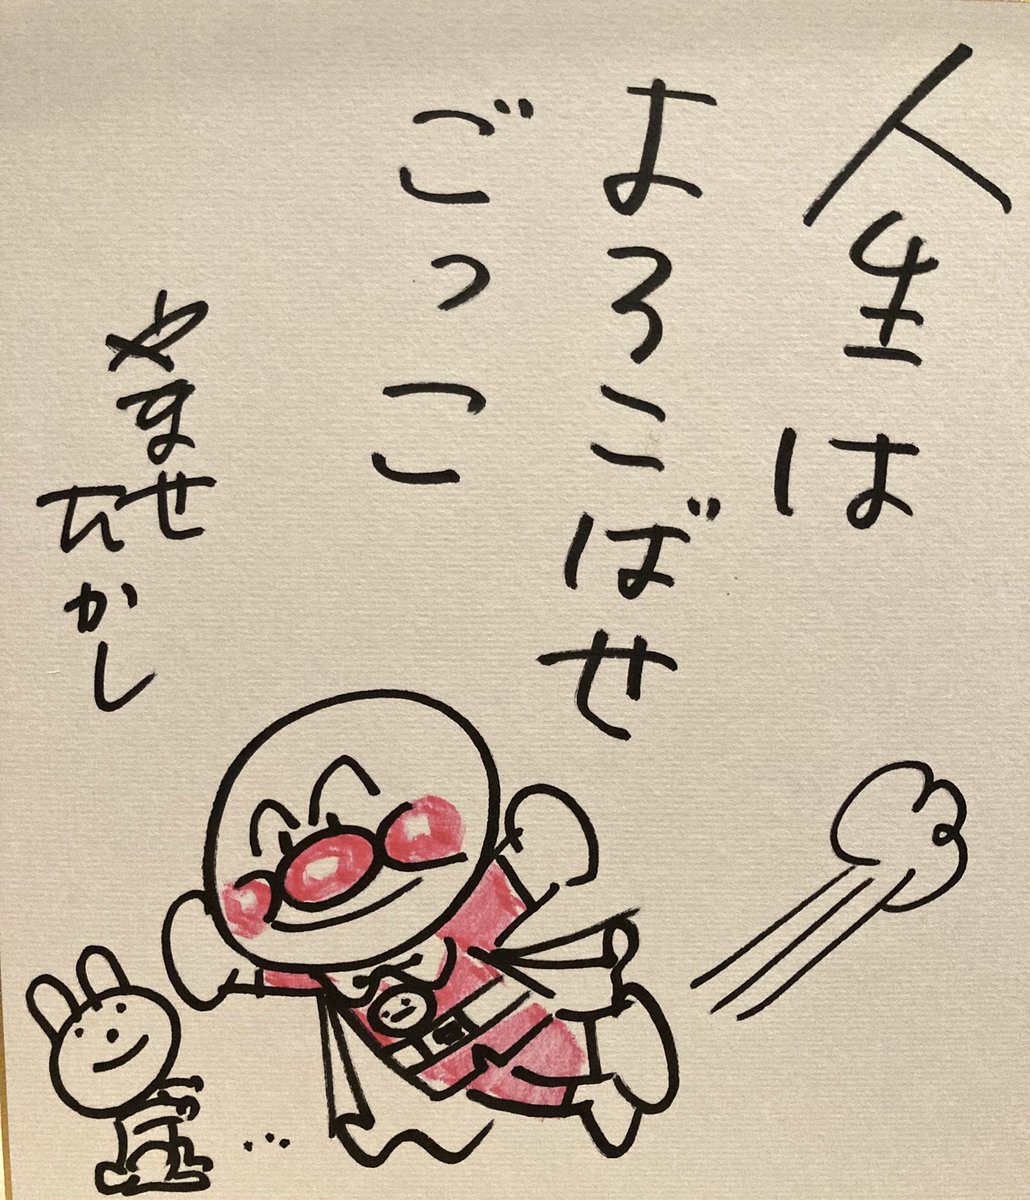 人生は
よろこばせ
ごっこ
やなせ
たかし